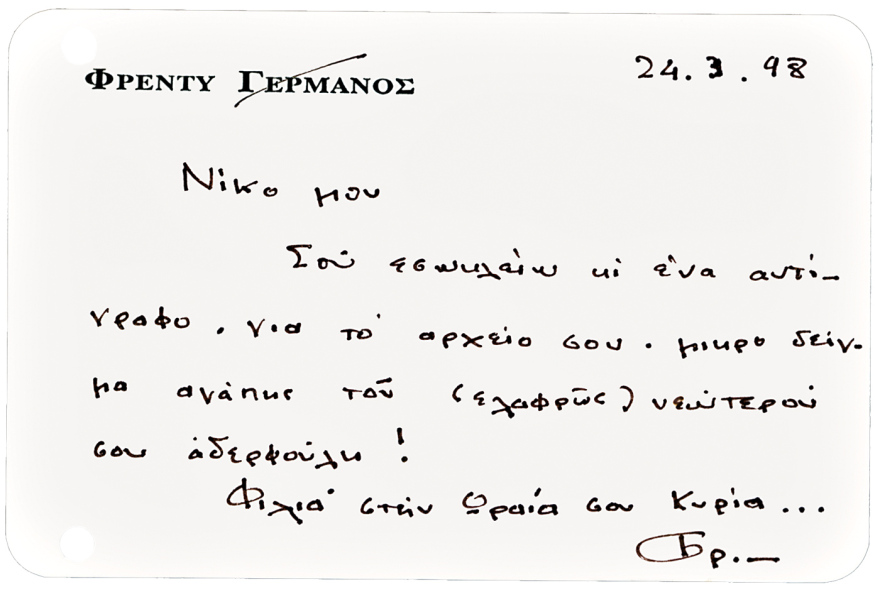 ΦΡΕΝΤΥ ΓΕΡΜΑΝΟΣ
24.3.98
Νίκο μου
Σού εσωκλείω κι ένα αντί-
γραφο, για τό αρχείο σου. μικρο δείγ-
μα αγάπης τοῦ (ελαφρῶς) νεώτερού
σου ἀδερφούλη!
Φιλιά στήν Ωραία σου Κυρία...
Φρ.—